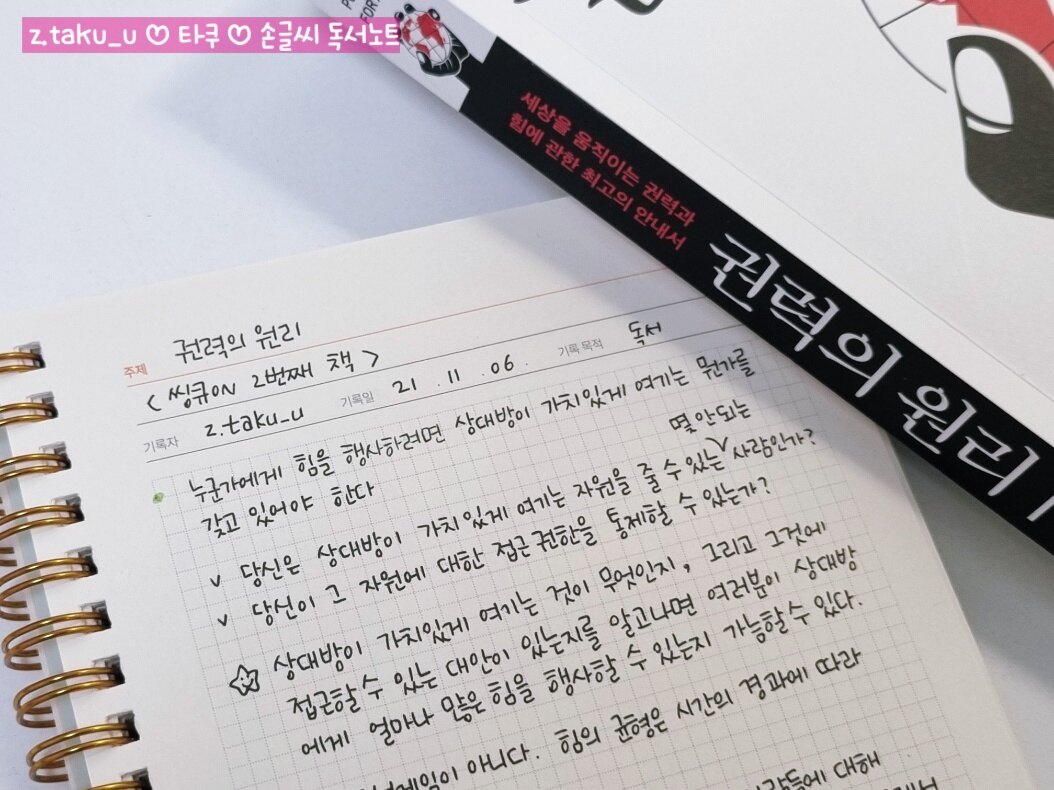 z.taku_u ♡ 타쿠 ♡ 손글씨 독서노트
세상을 움직이는 권력과
힘에 관한 최고의 안내서
권력의 원리
주제 권력의 원리
< 씽큐ON 2번째 책 >
기록자 z.taku_u 기록일 21 . 11 . 06 . 기록 목적 독서
누군가에게 힘을 행사하려면 상대방이 가치있게 여기는 뭔가를
갖고 있어야 한다
몇 안되는
v 당신은 상대방이 가치있게 여기는 자원을 줄 수 있는 사람인가?
v 당신이 그 자원에 대한 접근 권한을 통제할 수 있는가?
☆ 상대방이 가치있게 여기는 것이 무엇인지, 그리고 그것에
접근할 수 있는 대안이 있는지를 알고나면 여러분이 상대방
에게 얼마나 많은 힘을 행사할 수 있는지 가늠할 수 있다.
아니다. 힘의 균형은 시간의 경과에 따라
대해